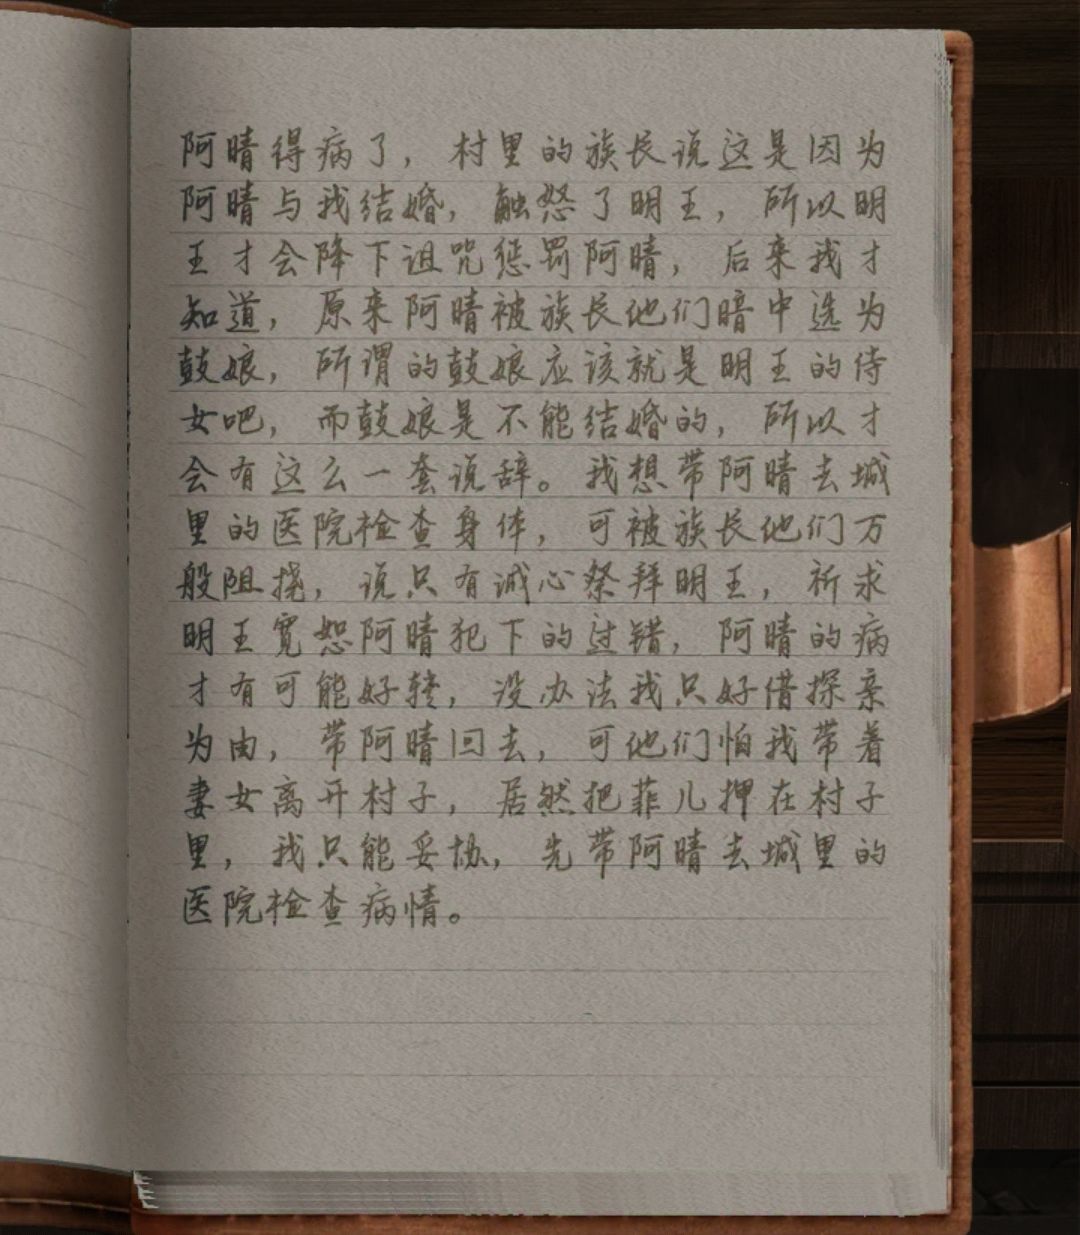 阿晴得病了，村里的族长说这是因为
阿晴与我结婚，触怒了明王，所以明
王才会降下诅咒惩罚阿晴，后来我才
知道，原来阿晴被族长他们暗中选为
鼓娘，所谓的鼓娘应该就是明王的侍
女吧，而鼓娘是不能结婚的，所以才
会有这么一套说辞。我想带阿晴去城
里的医院检查身体，可被族长他们万
般阻挠，说只有诚心祭拜明王，祈求
明王宽恕阿晴犯下的过错，阿晴的病
才有可能好转，没办法我只好借探亲
为由，带阿晴回去，可他们怕我带着
妻女离开村子，居然把菲儿押在村子
里，我只能妥协，先带阿晴去城里的
医院检查病情。